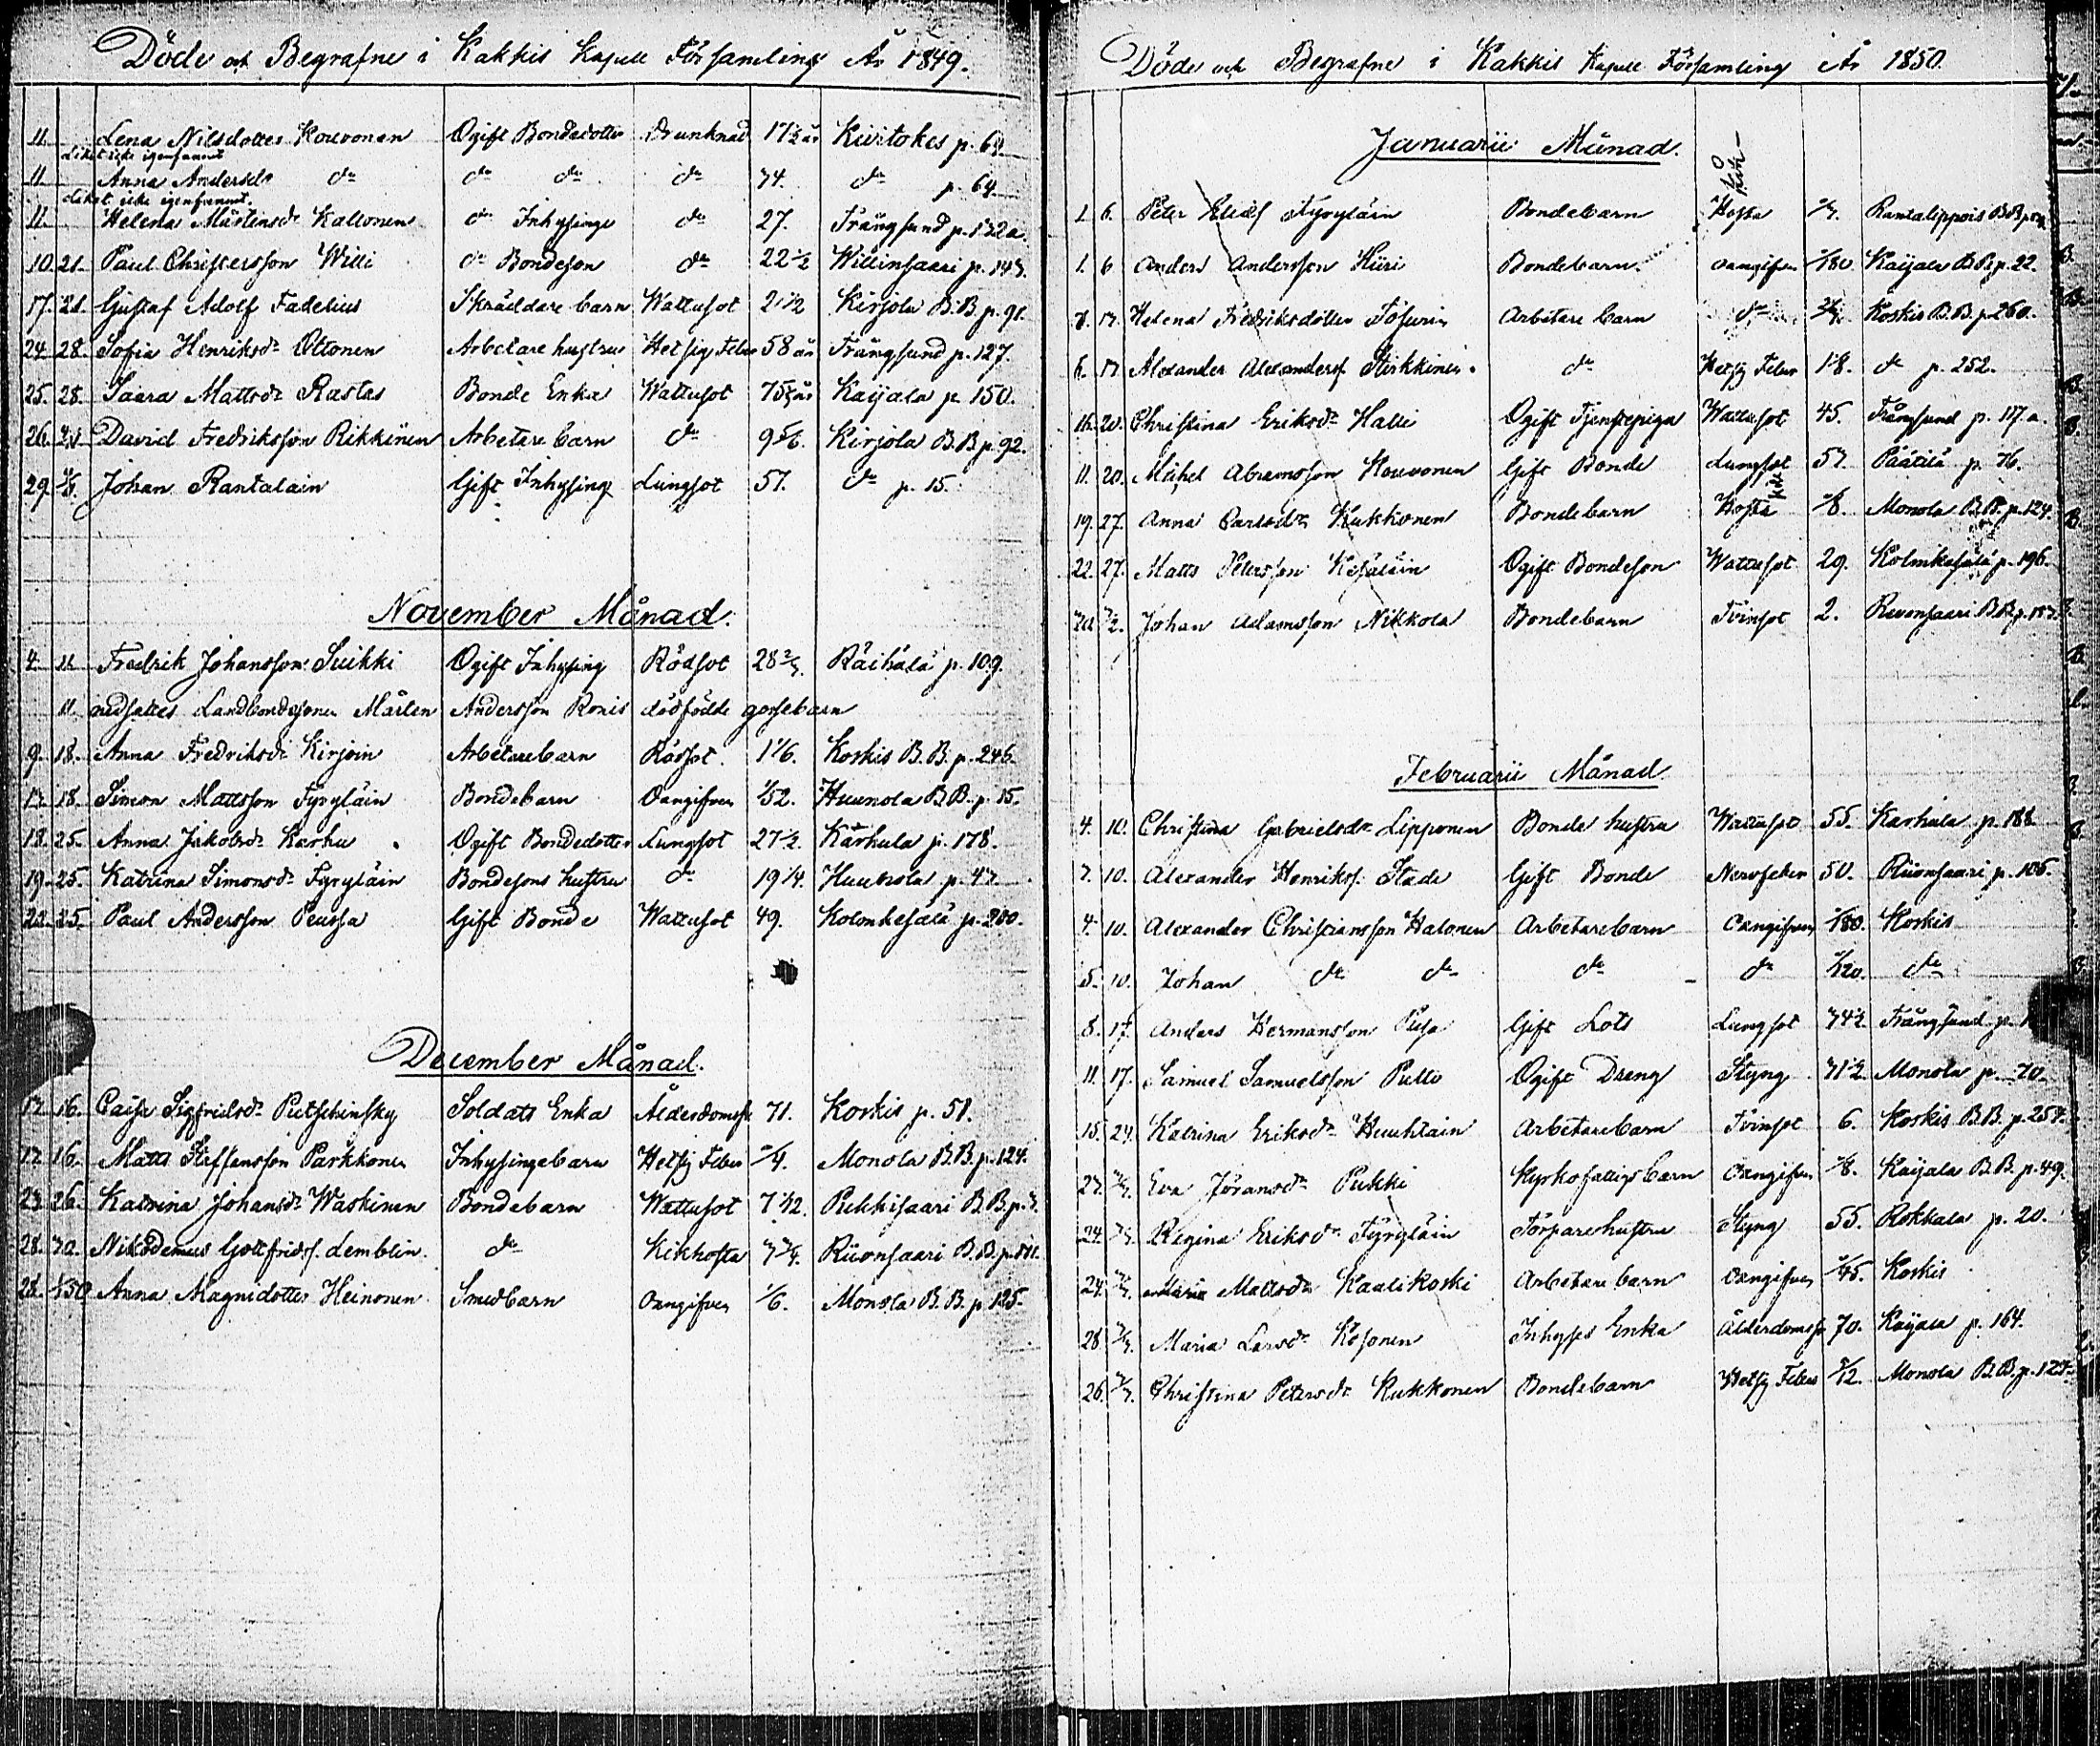 Döde och Begrafne i Kakkis Kapell Församling År 1849.
11. Lena Nilsdotter Kouvonen Ogift Bondedotter drunknad 17½ år Kiritokes p. 64.
liket icke igenfunnit
11. Anna Andersdr do do do do 74. do p. 64.
liket icke igenfunnit.
11. Helena Mårtensdr Kallonen do Inhysinge do 27. Trångsund p. 132 a.
10. 21. Paul Christersson Willi do Bondeson do 22½ Willinsaari p. 143.
17. 21. Gustaf Adolf Fadelius Skräddare barn Wattusot 2½ Kirjola B.B. p. 91.
24. 28. Sofia Henriksdr Ottonen Arbetare hustru Hetsig Feber 58 år Trångsund p. 127.
25. 28. Saara Mattsdr Rastas Bonde Enka Wattusot 75 år Kaijala p. 150.
26. 28. David Fredriksson Rikkinen Arbetare barn do 9 5/6. Kirjola B.B p. 92.
29. Johan Rantalain Gift Inhysing Lungsot 57. do p. 15.
November Månad.
4. 11. Fredrik Johansson Suikki Ogift Inhysing Rödsot 28 Räihälä p. 109.
11. nedsattes Landbondesonen Mårten Andersson Ronis dödfödde gossebarn
9. 18. Anna Fredriksdr Kirjoin Arbetarebarn Rödsot. 1 1/6. Koskis B.B. p. 246.
13. 18. Simon Mattsson Tyryläin Bondebarn Oangifven 1/52. Huunola B.B. p. 15.
18. 25. Anna Jakobsdr Karhu Ogift Bondedotter Lungsot 27½. Karhula p. 178.
19. 25. Katrina Simonsdr Tyryläin Bondesons hustru do 19¼. Huunola p. 47.
22. 25. Paul Andersson Peussa Gift Bonde Wattusot 49. Kolmikesälä p. 200.
December Månad.
12. 16. Caisa Sigfridsdr Putschinsky Soldats Enka Ålderdomsk 71. Koskis p. 51.
12. 16. Matts Steffansson Parkkonen Inhysingebarn Hetsig Feber Monola B.B. p. 124.
23. 26. Katrina Johansdr Waskinen Bondebarn Wattusot 7 1/12. Pukkisaari B.B. p. 3.
28. 30. Nikodemus Gottfridss. Lemblin. do Kikhosta 3¾. Riionsaari B.B. p.
28. 1/1 50 Anna Magnidotter Heinonen Smedbarn Oangifven 1/6. Monola B.B. p. 125.
Döde och Begrafne i Kakkis Kapell Församling År 1850.
Januarii Månad.
1. 6. Peter Tyryläin Bondebarn Kik-Hosta Rantalippois B.B. p.
1. 6 Anders Andersson Kiiri Bondebarn. oangifven 1/180 Kaijala B.B. p. 22.
Helena Fredriksdotter Tösurin Arbetare barn do Koskis B.B. p. 260.
6. 13 Alexander Alexanderss. Stirkkinen. do Hetsig Feber 1/8. do p. 252.
16. 20. Christina Eriksdr Halli Ogift Tjenstepiga Wattusot 45. Trångsund p. 117. a.
11. 20. Michel Abramsson Kouvonen Gift Bonde Lungsot 57. Päätilä p. 76.
19. 27. Anna Carlsdr Kukkonen Bondebarn Kik Hosta Monola B.B. p. 124.
22. 27. Matts Petersson Kesäläin Ogift Bondeson Wattusot 29. Kolmikesälä p. 196.
Johan Adamsson Nikkola Bondebarn Tvinsot 2. Revonsaari B.B. p.
Februarii Månad
4. 10. Christina Gabrielsdr Lipponen Bonde hustru Wattusot 55. Karhula p. 188
7. 10. Alexander Henrikss. Stade Gift Bonde Nervfeber 50. Riionsaari p. 106.
4. 10. Alexander Christiansson Halonen Arbetarebarn Oangifven 1/180. Koskis
5. 10. Johan do do do do 1/120. do
8. 17. Anders Hermansson Pusa Gift Lots Lungsot 74½ Trångsund p.
11. 17. Samuel Samuelsson Pullo Ogift Dreng Styng 71½ Monola p. 70.
15. 24. Katrina Eriksdr Huuhtain Arbetarebarn Tvinsot 6. Koskis B.B. p. 254.
Eva Jöransdr Pukki Kyrkofattigs barn Oangifven Kaijala B.B. p. 49.
24. Regina Eriksdr Tyryläin Torpare hustru Styng 55. Rokkala p. 20.
24. Maria Mattsdr Kaalikoski Arbetare barn Oangifven Koskis
28. Maria Larsdr Kosonen Inhyses Enka Ålderdoms 70. Kaijala p. 164.
26. Christina Petersdr Kukkonen Bondebarn Hetsig Feber Monola B.B. p. 127.